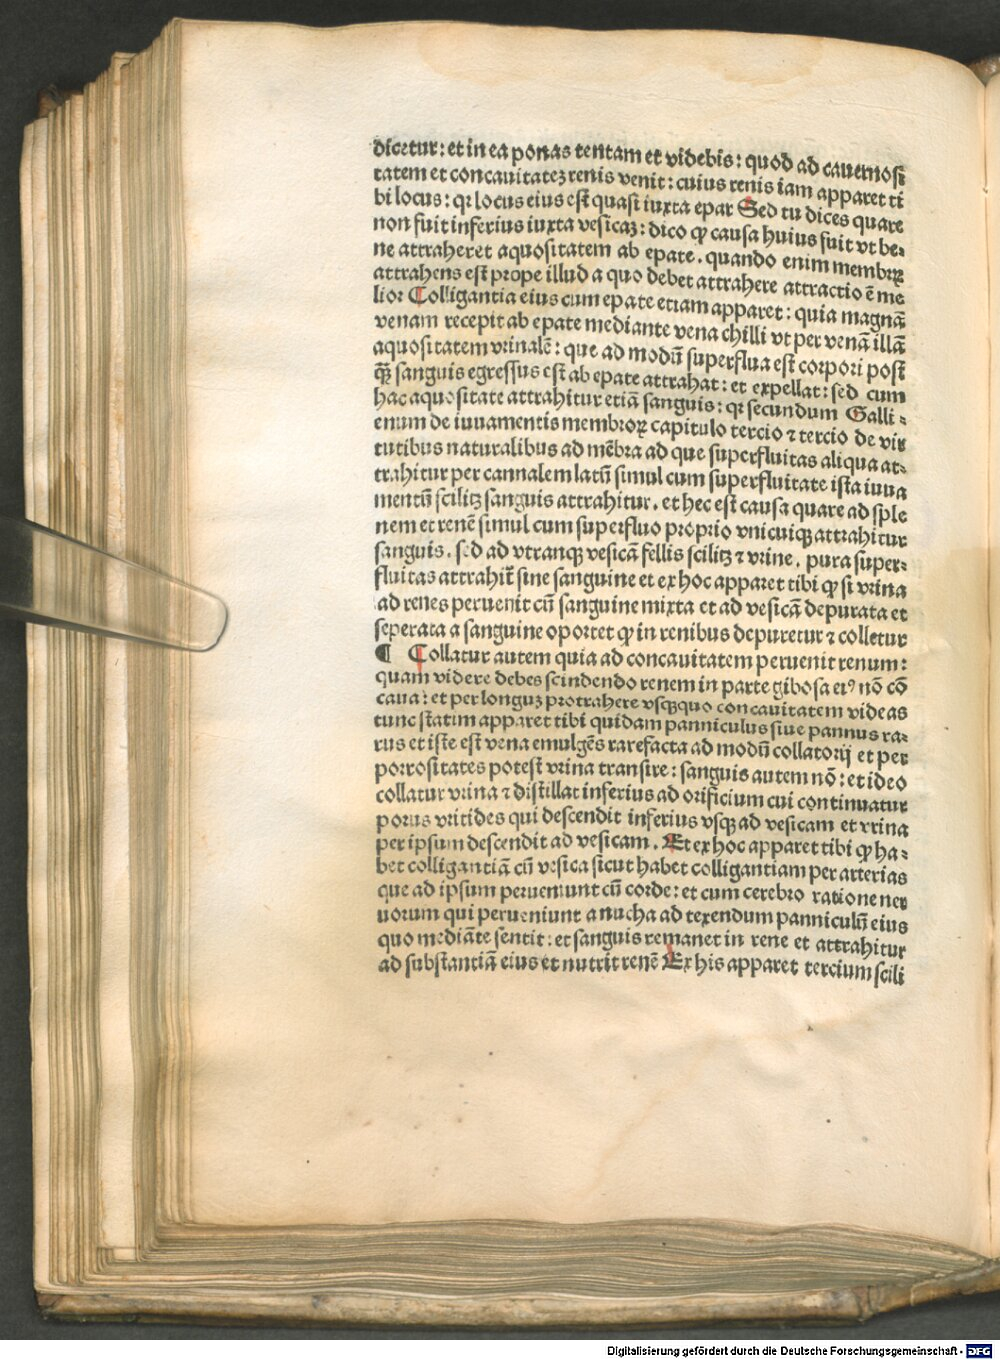 dicetur: et in ea ponas tentam et videbis: quod ad cauernosi
tatem et concauitatez renis venit: cuius renis iam apparet ti
bi locus: qr locus eius est quasi iuxta epar Sed tu dices quare
non fuit inferius iuxta vesicaz: dico ꝙ causa huius fuit vt be⸗
ne attraheret aquositatem ab epate. quando enim membrꝝ
attrahens est prope illud a quo debet attrahere attractio ē me
lior Colligantia eius cum epate etiam apparet: quia magnā
venam recepit ab epate mediante vena chilli vt per venā illā
aquositatem vrinalē: que ad modū superflua est corpori post
qᷓꝫ sanguis egressus est ab epate attrahat: et expellat: sed cum
hac aquositate attrahitur etiā sanguis: qr secundum Galli⸗
enum de iuuamentis membroꝝ capitulo tercio ⁊ tercio de vir
tutibus naturalibus ad mēbra ad que superfluitas aliqua at⸗
trahitur per cannalem latū simul cum superfluitate ista iuua
mentū scilitꝫ sanguis attrahitur. et hec est causa quare ad sple
nem et renē simul cum superfluo proprio vnicuiqꝫ attrahitur
sanguis. sed ad vtranqꝫ vesicā fellis scilitꝫ ⁊ vrine. pura super⸗
fluitas attrahit̄ sine sanguine et ex hoc apparet tibi ꝙ si vrina
ad renes peruenit cū sanguine mixta et ad vesicā depurata et
seperata a sanguine oportet ꝙ in renibus depuretur ⁊ colletur
¶ Collatur autem quia ad concauitatem peruenit renum:
quam videre debes scindendo renem in parte gibosa eiꝰ nō cō
caua: et per longuz protrahere vsqꝫquo concauitatem videas
tunc statim apparet tibi quidam panniculus siue pannus ra⸗
rus et iste est vena emulgēs rarefacta ad modū collatorij et per
porrositates potest vrina transire: sanguis autem nō: et ideo
collatur vrina ⁊ distillat inferius ad orificium cui continuatur
porus vritides qui descendit inferius vsqꝫ ad vesicam et vrina
per ipsum descendit ad vesicam. Et ex hoc apparet tibi ꝙ ha⸗
bet colligantiā cū vesica sicut habet colligantiam per arterias
que ad ipsum perueniunt cū corde: et cum cerebro ratione ner
uorum qui perueniunt a nucha ad texendum panniculū eius
quo mediāte sentit: et sanguis remanet in rene et attrahitur
ad substantiā eius et nutrit renē Ex his apparet tercium scili
Digitalisierung gefördert durch die Deutsche Forschungsgemeinschaft - DFG